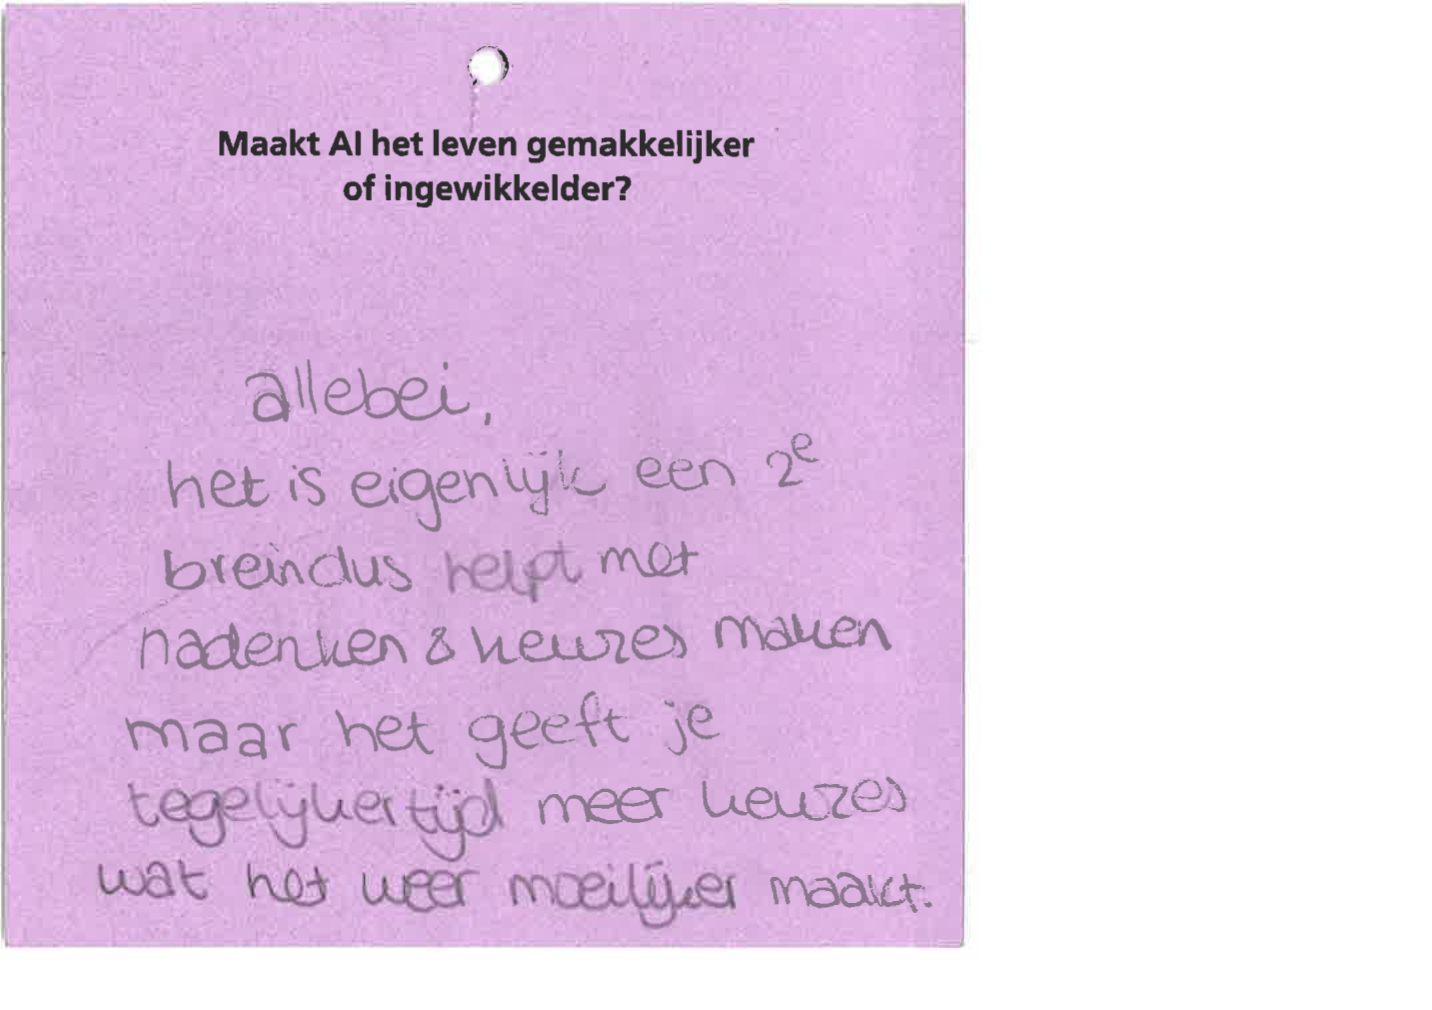 Maakt AI het leven gemakkelijker
of ingewikkelder?
allebei,
het is eigenlijk een 2e
brein dus helpt met
nadenken & keuzes maken
maar het geeft je
tegelijkertijd meer keuzes
wat het weer moeilijker maakt.